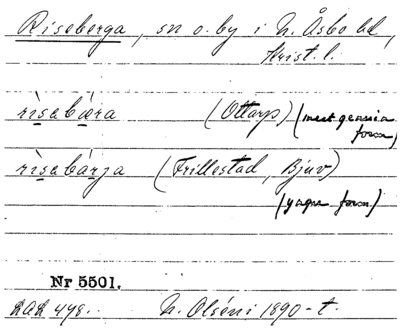 Riseberga, sn o. by i N. Åsbo hd,
Krist. l.
risabæra (Ottarp) (mest genuina
form)
risabárja (Frillestad, Bjuv)
(yngre form)
Nr 5501.
LAL 498. N. Olséni 1890-t.